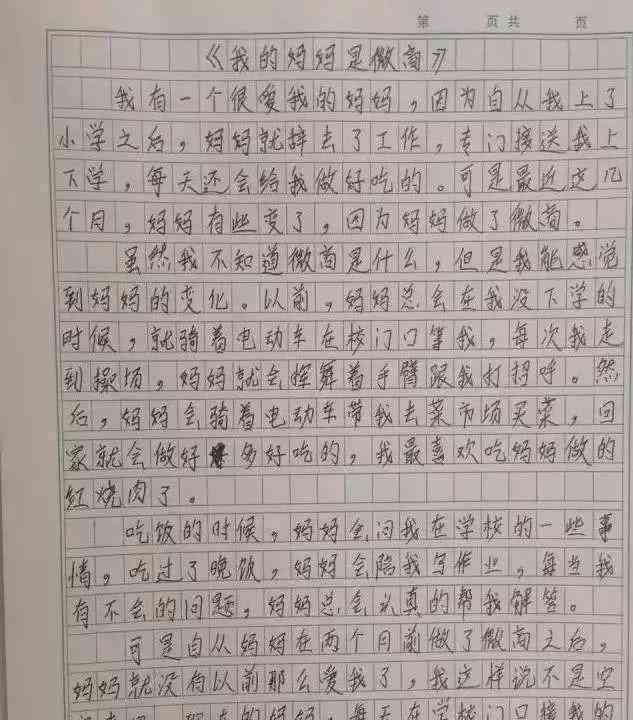 第 页共 页
《我的妈妈是微商》
我有一个很爱我的妈妈，因为自从我上了
小学之后，妈妈就辞去了工作，专门接送我上
下学，每天还会给我做好吃的。可是最近这几
个月，妈妈有些变了，因为妈妈做了微商。
虽然我不知道微商是什么，但是我能感觉
到妈妈的变化。以前，妈妈总会在我没下学的
时候，就骑着电动车在校门口等我，每次我走
到操场，妈妈就会挥舞着手臂跟我打招呼。然
后，妈妈会骑着电动车带我去菜市场买菜，回
家就会做好多好吃的，我最喜欢吃妈妈做的
红烧肉了。
吃饭的时候，妈妈会问我在学校的一些事
情，吃过了晚饭，妈妈会陪我写作业，每当我
有不会的问题，妈妈总会认真的帮我解答。
可是自从妈妈在两个月前做了微商之后，
妈妈就没有以前那么爱我了，我这样说不是空
的妈妈，每天在学校门口接我的